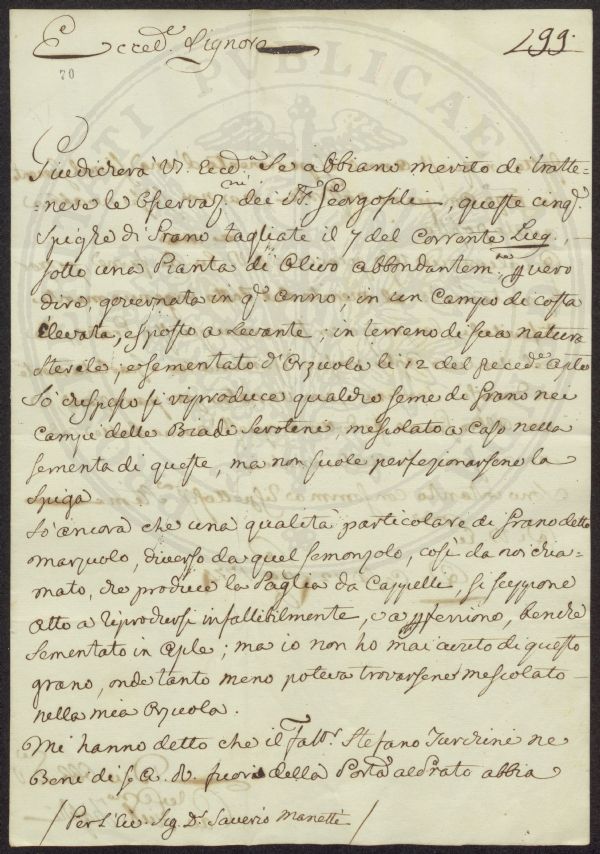 Ecced. Signore
299.
70
PUBLICAE
Giudicherà V. Ecced.a Se abbiano merito di tratte-
=nere le Oservaz.ni dei SS.ri Georgofili, queste cinq.
Spighe di Grano tagliate il 7 del Corrente Lug.
sotto una Pianta di Olivo abbondantem.te p vero
dire, governata in q.to anno, in un Campo di costa
elevata, esposto a Levante, in terreno di sua natura
Sterile, e sementato d'Orzuola li 12 del preced.e Aple
So che spesso si riproduce qualche seme di Grano nei
Campi delle Biade Serotine, mescolato a caso nella
sementa di queste, ma non suole perfezionarsene la
spiga
So ancora che una qualità particolare di Grano detto
Marzuolo, diverso da quel semonzolo, così da noi chia-
mato, che produce la Paglia da Cappelli, si suppone
atto a riprodursi infallibilmente, e a p fezzione, benche
Sementato in Aple; ma io non ho mai avuto di questo
grano, onde tanto meno poteva trovarsene mescolato
nella mia Orzuola.
Mi hanno detto che il Fatt.r Stefano Turchini ne
Beni di S. A. R. fuori della Porta al Prato abbia
/ Per l'Ecc. Sig. D. Saverio Manetti /